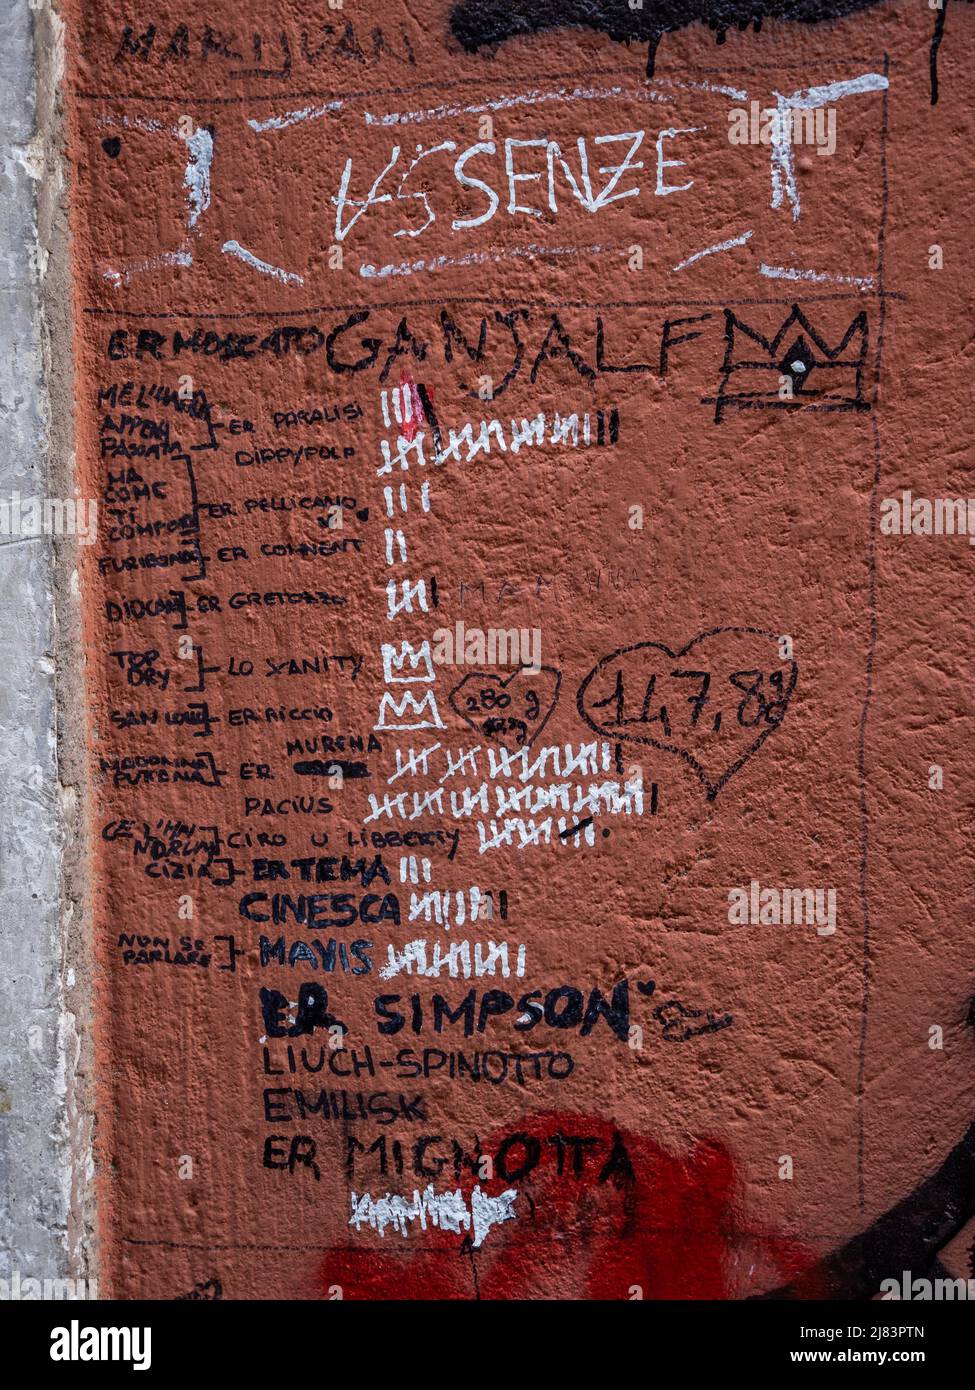 MARIJUAN
ASSENZE
ER MOSCATO GANJALF
ME L'HAI
APPENA
PASSATA
ER PARALISI
DIPPYPOLO
MA
COME
TI
COMPORTI
ER PELLICANO
FURIBONDA
ER COMMENT
DIOCAN
ER GRETOZZO
MAMANNA
TOP
DRY
LO XANITY
147,8g
280 g
SAN LOUIS
ER RICCIO
MADONNA
PUTTANA
ER MURENA
PACIUS
CIRO U LIBBERTY
CIZIA
ER TEMA
CINESCA
NON SE
PARLARE
MAVIS
ER SIMPSON
LIUCH-SPINOTTO
EMILISK
ER MIGNOTTA
alamy
Image ID: 2J83PTN
www.alamy.com